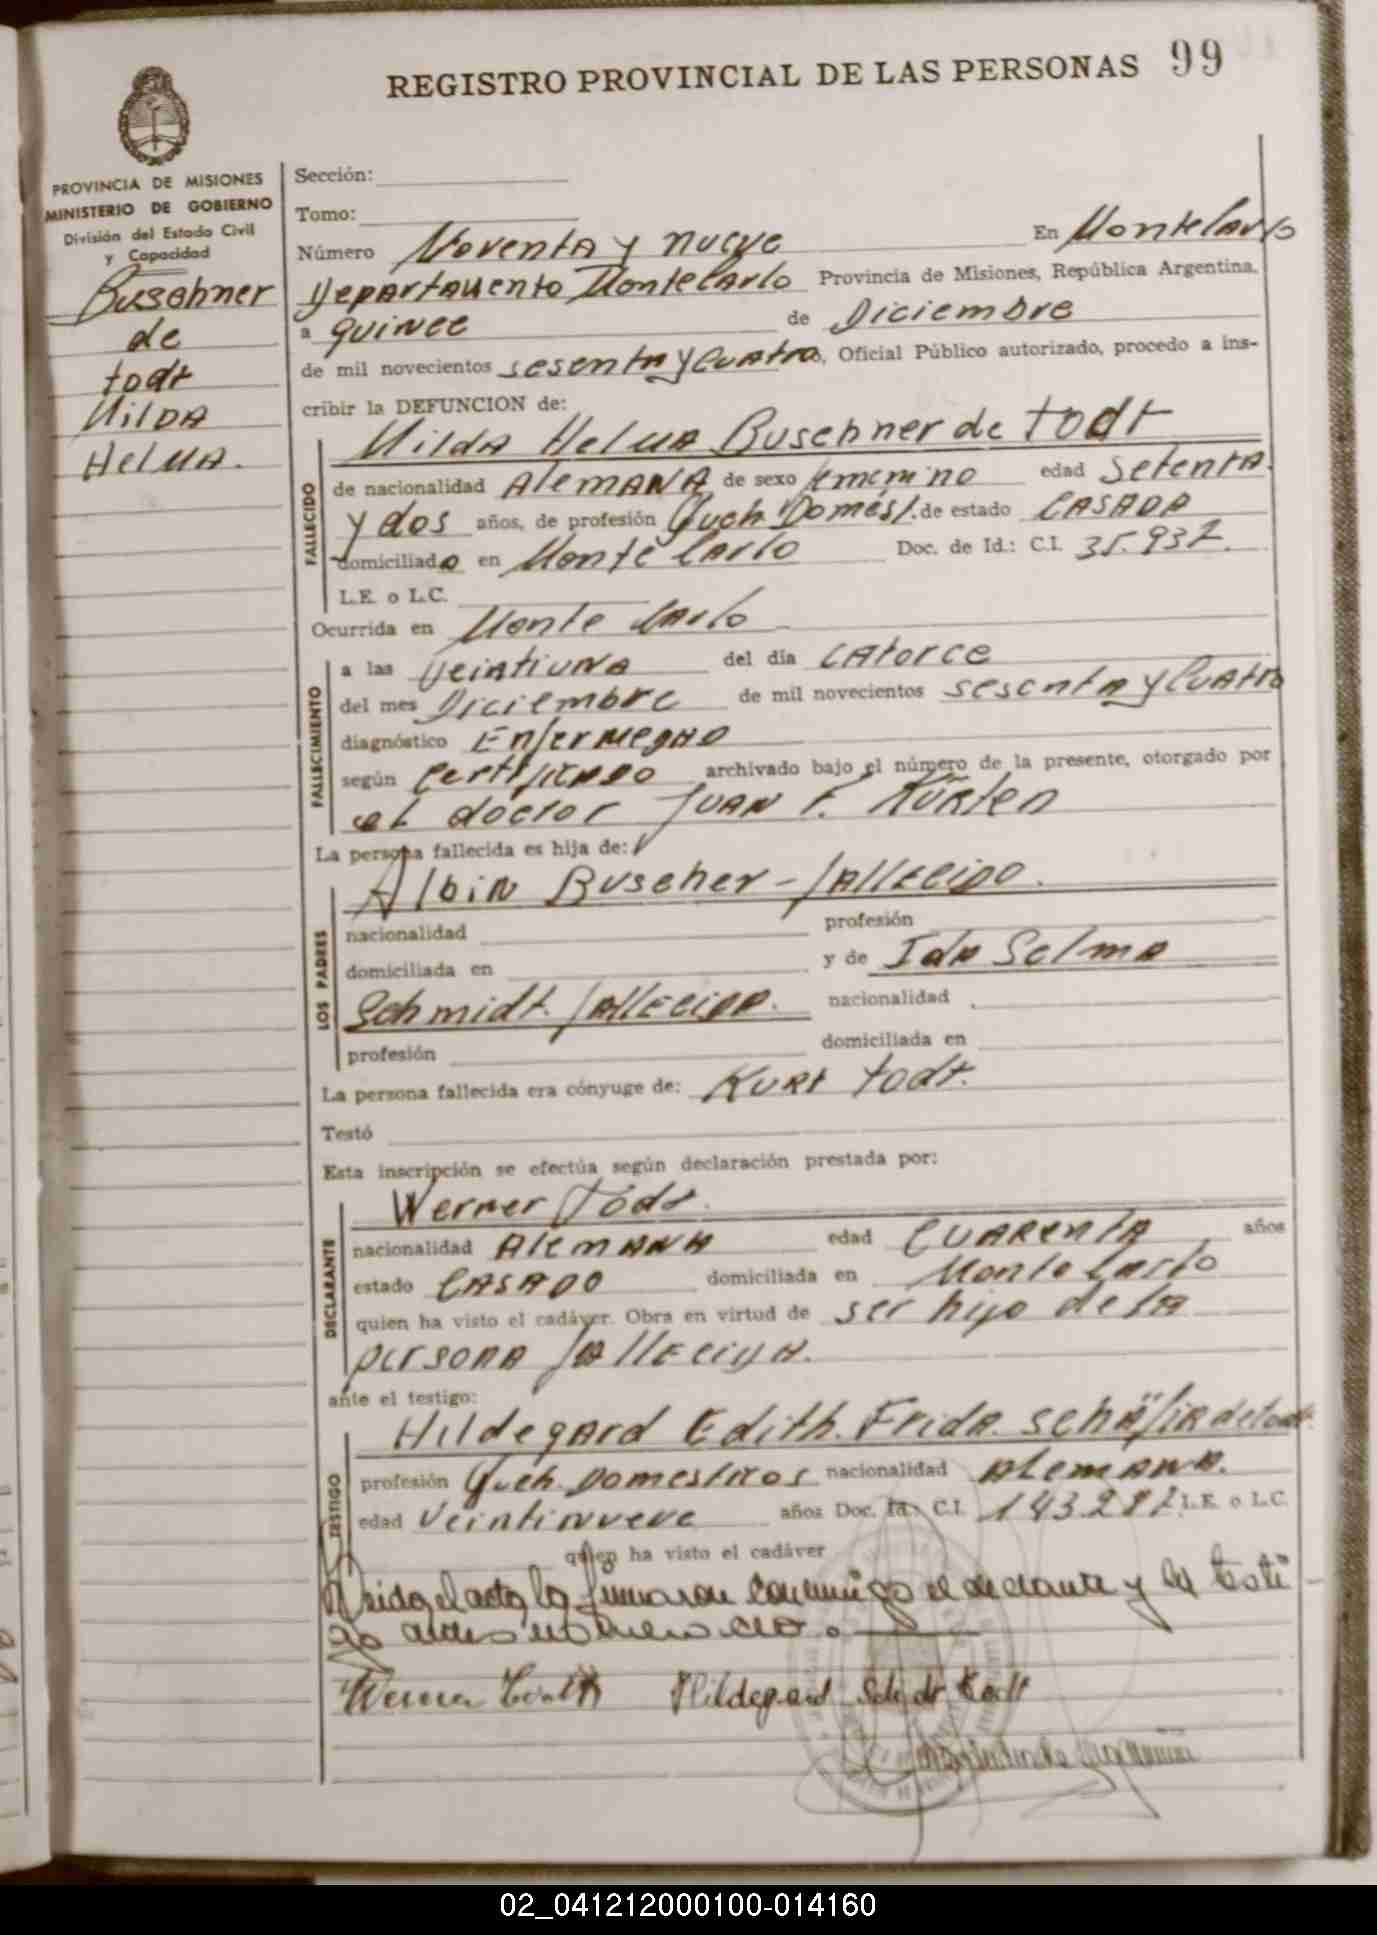 REGISTRO PROVINCIAL DE LAS PERSONAS 99
PROVINCIA DE MISIONES
MINISTERIO DE GOBIERNO
División del Estado Civil
y Capacidad
Buschner
de
todt
Hilda
Helma.
Sección:
Tomo:
Número Noventa y nueve En Montecarlo
Departamento Montecarlo Provincia de Misiones, República Argentina,
a quince de Diciembre
de mil novecientos sesenta y cuatro, Oficial Público autorizado, procedo a ins-
cribir la DEFUNCION de:
Hilda Helma Buschner de todt
FALLECIDO
de nacionalidad Alemana de sexo femenino edad setenta
y dos años, de profesión Queh. Domést. de estado casada
domiciliada en Monte Carlo Doc. de Id.: C.I. 35.937.
L.E. o L.C.
Ocurrida en Monte Carlo
FALLECIMIENTO
a las veintiuna del día catorce
del mes Diciembre de mil novecientos sesenta y cuatro
diagnóstico
según certificado archivado bajo el número de la presente, otorgado por
el doctor Juan F. Kürten
La persona fallecida es hija de:
LOS PADRES
Albin Buscher - fallecido.
nacionalidad profesión
domiciliada en y de Ida Selma
Schmidt. fallecida. nacionalidad
profesión domiciliada en
La persona fallecida era cónyuge de: Kurt todt.
Testó
Esta inscripción se efectúa según declaración prestada por:
DECLARANTE
Werner Todt.
nacionalidad Alemana edad cuarenta años
estado casado domiciliada en Monte Carlo
quien ha visto el cadáver. Obra en virtud de ser hijo de la
persona fallecida.
ante el testigo:
TESTIGO
Hildegard Edith. Frida. Schäfer de todt.
profesión Queh. Domesticos nacionalidad Alemana.
edad veintinueve años Doc. Id.: C.I. 143.297. L.E. o L.C.
quien ha visto el cadáver
el acta la firmaron conmigo el declarante y la testi-
go
Werner Todt Hildegard Todt
02_041212000100-014160